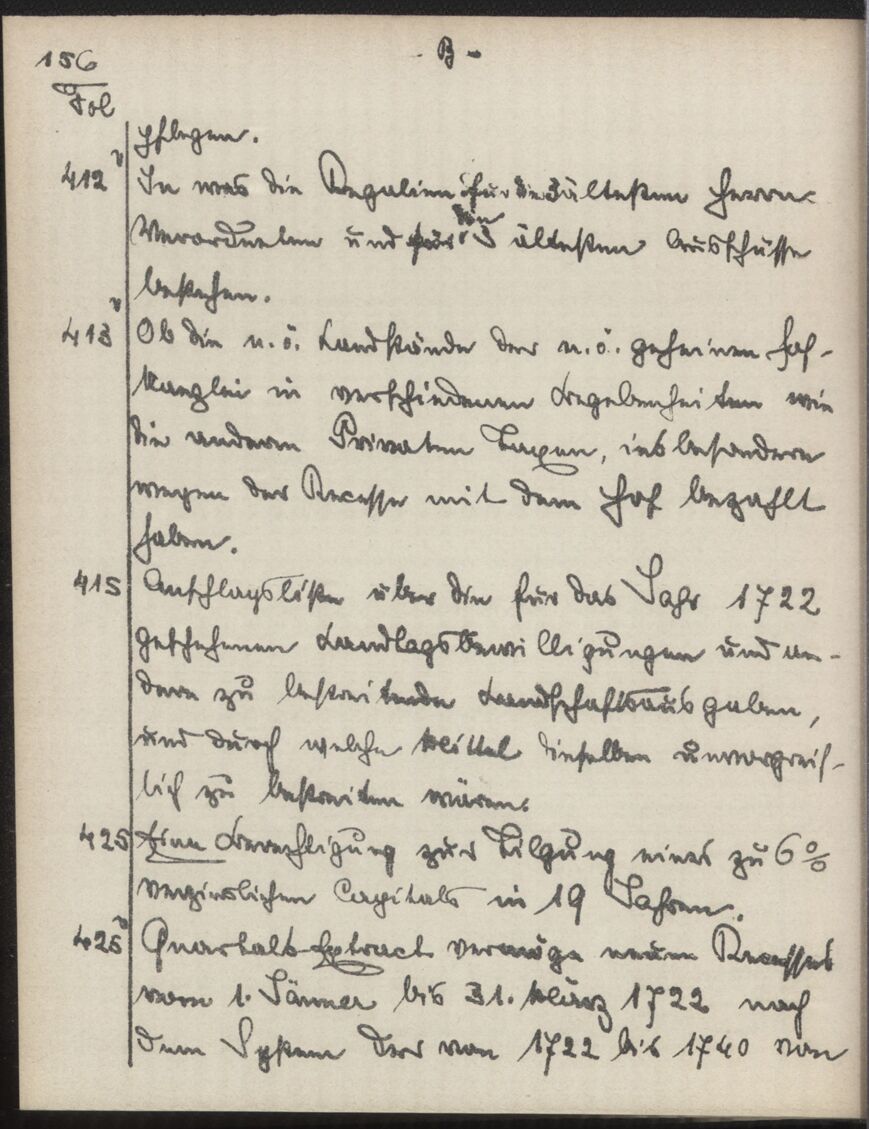 156
- B -
Fol
pflegen.
412v In was die Regalien für die 3 ältesten Herrn
Verordneten und für die 3 ältesten Ausschüsse
bestehen.
413v Ob die n. ö. Landstände der n. ö. geheimen Hof-
kanzlei in verschiedenen Begebenheiten wie
die andern Privaten Taxen, insbesondere
wegen der Recesse mit dem Hof bezahlt
haben.
415 Anschlagsliste über die für das Jahr 1722
geschehenen Landtagsbewilligungen und an-
dere zu bestreitende Landschaftsausgaben,
und durch welche Mittel dieselben unvorgreif-
lich zu bestreiten wären.
425 Eine Berechtigung zur Tilgung eines zu 6%
verzinslichen Capitals in 19 Jahren.
425v Quartals-Extract vermöge neuen Recesses
vom 1. Jänner bis 31. März 1722 nach
dem System der von 1722 bis 1740 von